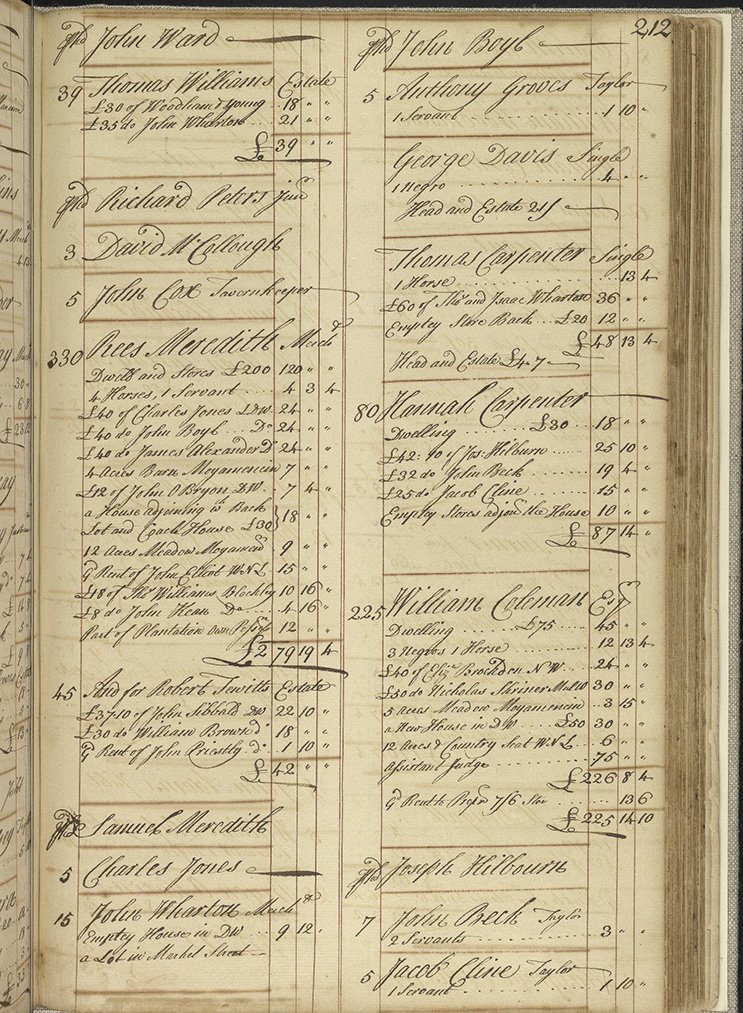 212
John Ward
39 Thomas Williams Estate
£30 of Woodham & Young .. 18 " "
£35 do John Wharton .. 21 " "
£ 39 " "
Richard Peters Junr
3 David McCollough
5 John Cox Tavernkeeper
330 Rees Meredith Mercht
Dwellg and Stores £200 120 " "
4 Horses, 1 Servant .. 4 3 4
£40 of Charles Jones DW 24 " "
£40 do John Boyl .. Do 24 " "
£40 do James Alexander Do 24 " "
4 Acres Barn Moyamencin 7 " "
£12 of John O Bryon DW .. 7 4 "
a House adjoining wth Back
Lot and Coach House £30 } 18 " "
12 Acres Meadow Moyamencn 9 " "
Gd Rent of John Elliot WNL 15 " "
£18 of Thos Williams Blockley 10 16 "
£8 do John Hean Do .. 4 16 "
Part of Plantation own 12 " "
£279 19 4
45 And for Robert Jewitts Estate
£37.10 of John Sibbald DW 22 10 "
£30 do William Brown do 18 " "
Gd Rent of John Priestly do 1 10 "
£ 42 " "
Samuel Meredith
5 Charles Jones
15 John Wharton Mercht
Empley House in DW .. 9 12 "
a Lot in Market Street
John Boyl
5 Anthony Groves Taylor
1 Servant .. 1 10 "
George Davis Single
1 Negro .. 4 " "
Head and Estate 21/
Thomas Carpenter Single
1 Horse .. 13 4
£60 of Thos and Isaac Wharton 36 " "
Empley Store Back .. £20 12 " "
£ 48 13 4
Head and Estate £4 7
80 Hannah Carpenter
Dwelling .. £30 .. 18 " "
£42.10 of Jos: Hilburn .. 25 10 "
£32 do John Beck .. 19 4 "
£25 do Jacob Cline .. 15 " "
Empley Stores adjong the House 10 " "
£ 87 14 "
225 William Coleman Esqr
Dwelling .. £75 .. 45 " "
3 Negros 1 Horse .. 12 13 4
£40 of Eliz: Brockden NW .. 24 " "
£50 do Nicholas Shriner MulW 30 " "
5 Acres Meadow Moyamencin .. 3 15 "
a New House in DW .. £50 30 " "
12 Acres & Country Seat WNL .. 6 " "
Assistant Judge .. 75 " "
£ 226 8 4
Gd Rent to Propr 7/6 Ster .. 13 6
£ 225 14 10
Joseph Hilbourn
7 John Beck Taylor
2 Servants .. 3 " "
5 Jacob Cline Taylor
1 Servant .. 1 10 "